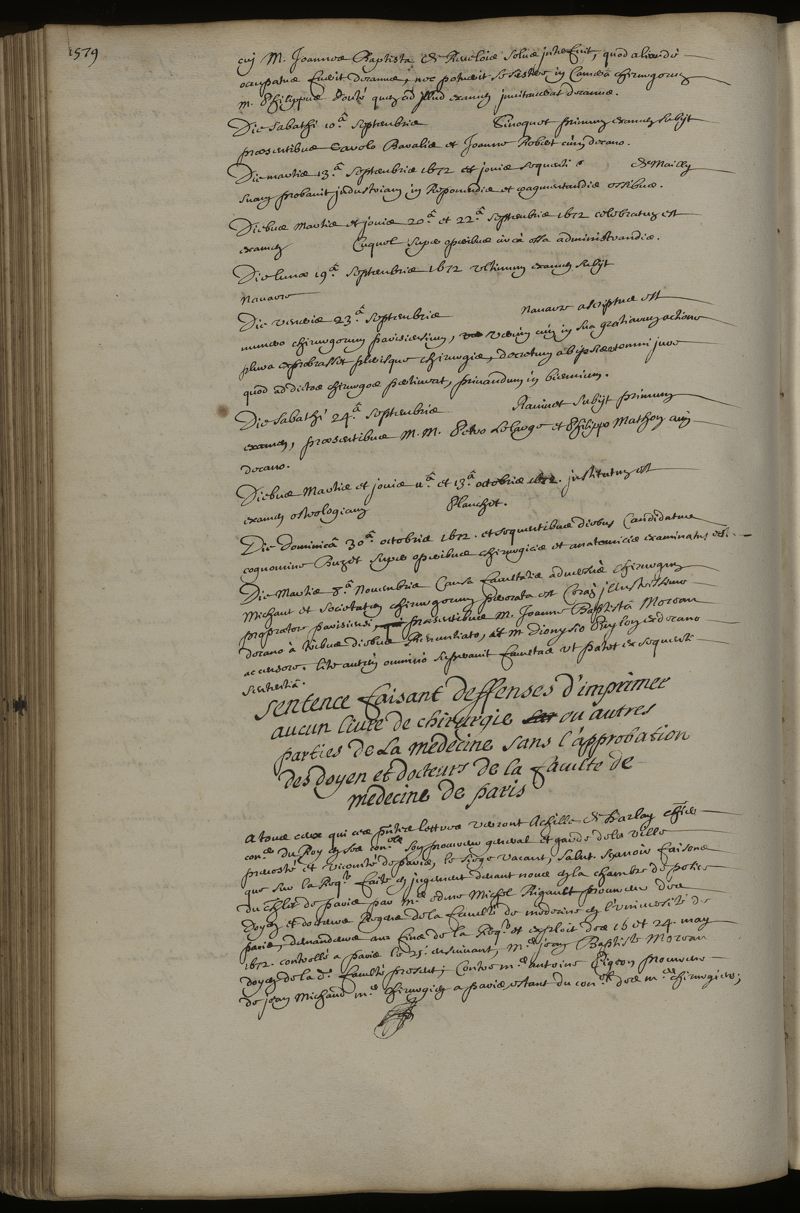 1579
cuj M. Joannes Baptista de Revelois solus interfuit, quod aliunde
occupatus fuerit decanus, nec potuerit se sistere in Camera chirurgorum
M. Philippus Douté quem ad illud examen invitaverat decanus.
Die Sabathi 10.ª Septembris Sinoquet primum examen subijt
præsentibus Carolo Bavalis et Joanne Robert cum decano.
Die martis 13.ª Septembris 1672 et jovis sequenti de Mailly
suam probavit industriam in reponendis et coagmentandis ossibus.
Diebus Martis et jovis 20.ª et 22.ª Septembris 1672 celebratum est
examen Cuquel super operibus circa ossa administrandis.
Die lunæ 19.ª Septembris 1672 ultimum examen subijt
Navarre
Die veneris 23.ª Septembris Navarre ascriptus est
numero chirurgorum parisiensium, verum cum in sua gratiarum actione
plura exprobrasset plerisque chirurgis, decretum ab ipsis eet omni jure
quod ad dictos chirurgos pertineat, privandum in biennium.
Die Sabathi 24.ª Septembris Raninet subijt primum
examen, præsentibus M. M. Petro Lelarge et Philippo Mathon cum
decano.
Diebus Martis et jovis 11.ª et 13.ª octobris 1672. institutum est
examen osteologicum Planchet.
Die Dominica 30.ª octobris 1672. et sequentibus diebus Candidatus
cognomine Buzet super operibus chirurgicis et anatomicis examinatus est.
Die Martis 8.ª Novembris Causa facultatis adversus chirurgum
Michaut et Societatem chirurgorum perorata est Coram illustrissimo
proprætore parisiensi, præsentibus M. Joanne Baptista Moreau
decano a tribus diebus renuntiato, et M. Dionysio Puylon exdecano
ac censore. lite autem omnino superavit facultas ut patet ex sequenti
Sententia.
Sentence faisant deffenses d'imprimer
aucun livre de chirurgie sur ou autres
parties de La medecine sans l'approbation
des doyen et docteurs de la faculte de
medecine de paris
A tous ceux qui ces pntes lettres verront Achille de harlay cher
conr du Roy en ses conls son procureur general et garde de la ville
prevosté et vicomté de paris, le siege vacant, salut. sçavoir faisons
que sur la Reqte faite en jugement devant nous en la chambre de police
du chlet de paris par me edme Michel Rigault procureur des
doyen et docteurs Regens de la faculté de medecine en l'université de
paris, demandeurs aux fins de la Reqte et exploit des 16 et 24. may
1672. controllé a paris le 25.e ensuivant, me jean Baptiste Moreau
doyen de la de faculté present; Contre me antoine Pigeon procureur
de jean Michault me chirurgien a paris estant du conl des mes chirurgiens;